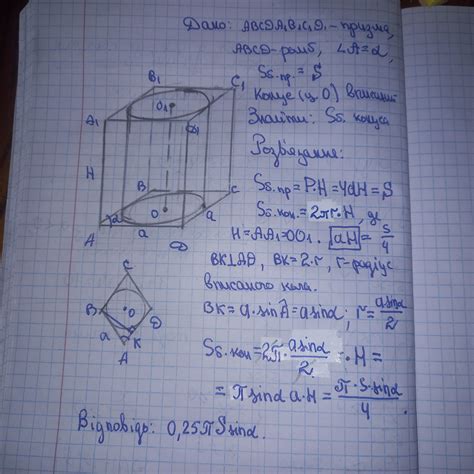 Дано: ABCDA₁B₁C₁D₁ - призма,
ABCD - ромб, ∠A = α,
Sб.пр. = S
Конус (ц. O) вписаний
Знайти: Sб. конуса
Розв'язання:
Sб.пр = P·H = 4aH = S
Sб.кон. = 2πr·H, де
H = AA₁ = OO₁. aH = S/4
BK⊥AD, BK = 2·r, r - радіус
вписаного кола.
BK = a·sinÂ = a sinα; r = a sinα/2
Sб.кон = 2π· a sinα/2 ·H =
= π sinα a·H = π·S·sinα/4.
Відповідь: 0,25πS sinα.
B₁
C₁
O₁
A₁
D₁
H
B
C
O
α
a
A
a
D
C
B
O
D
a
K
A